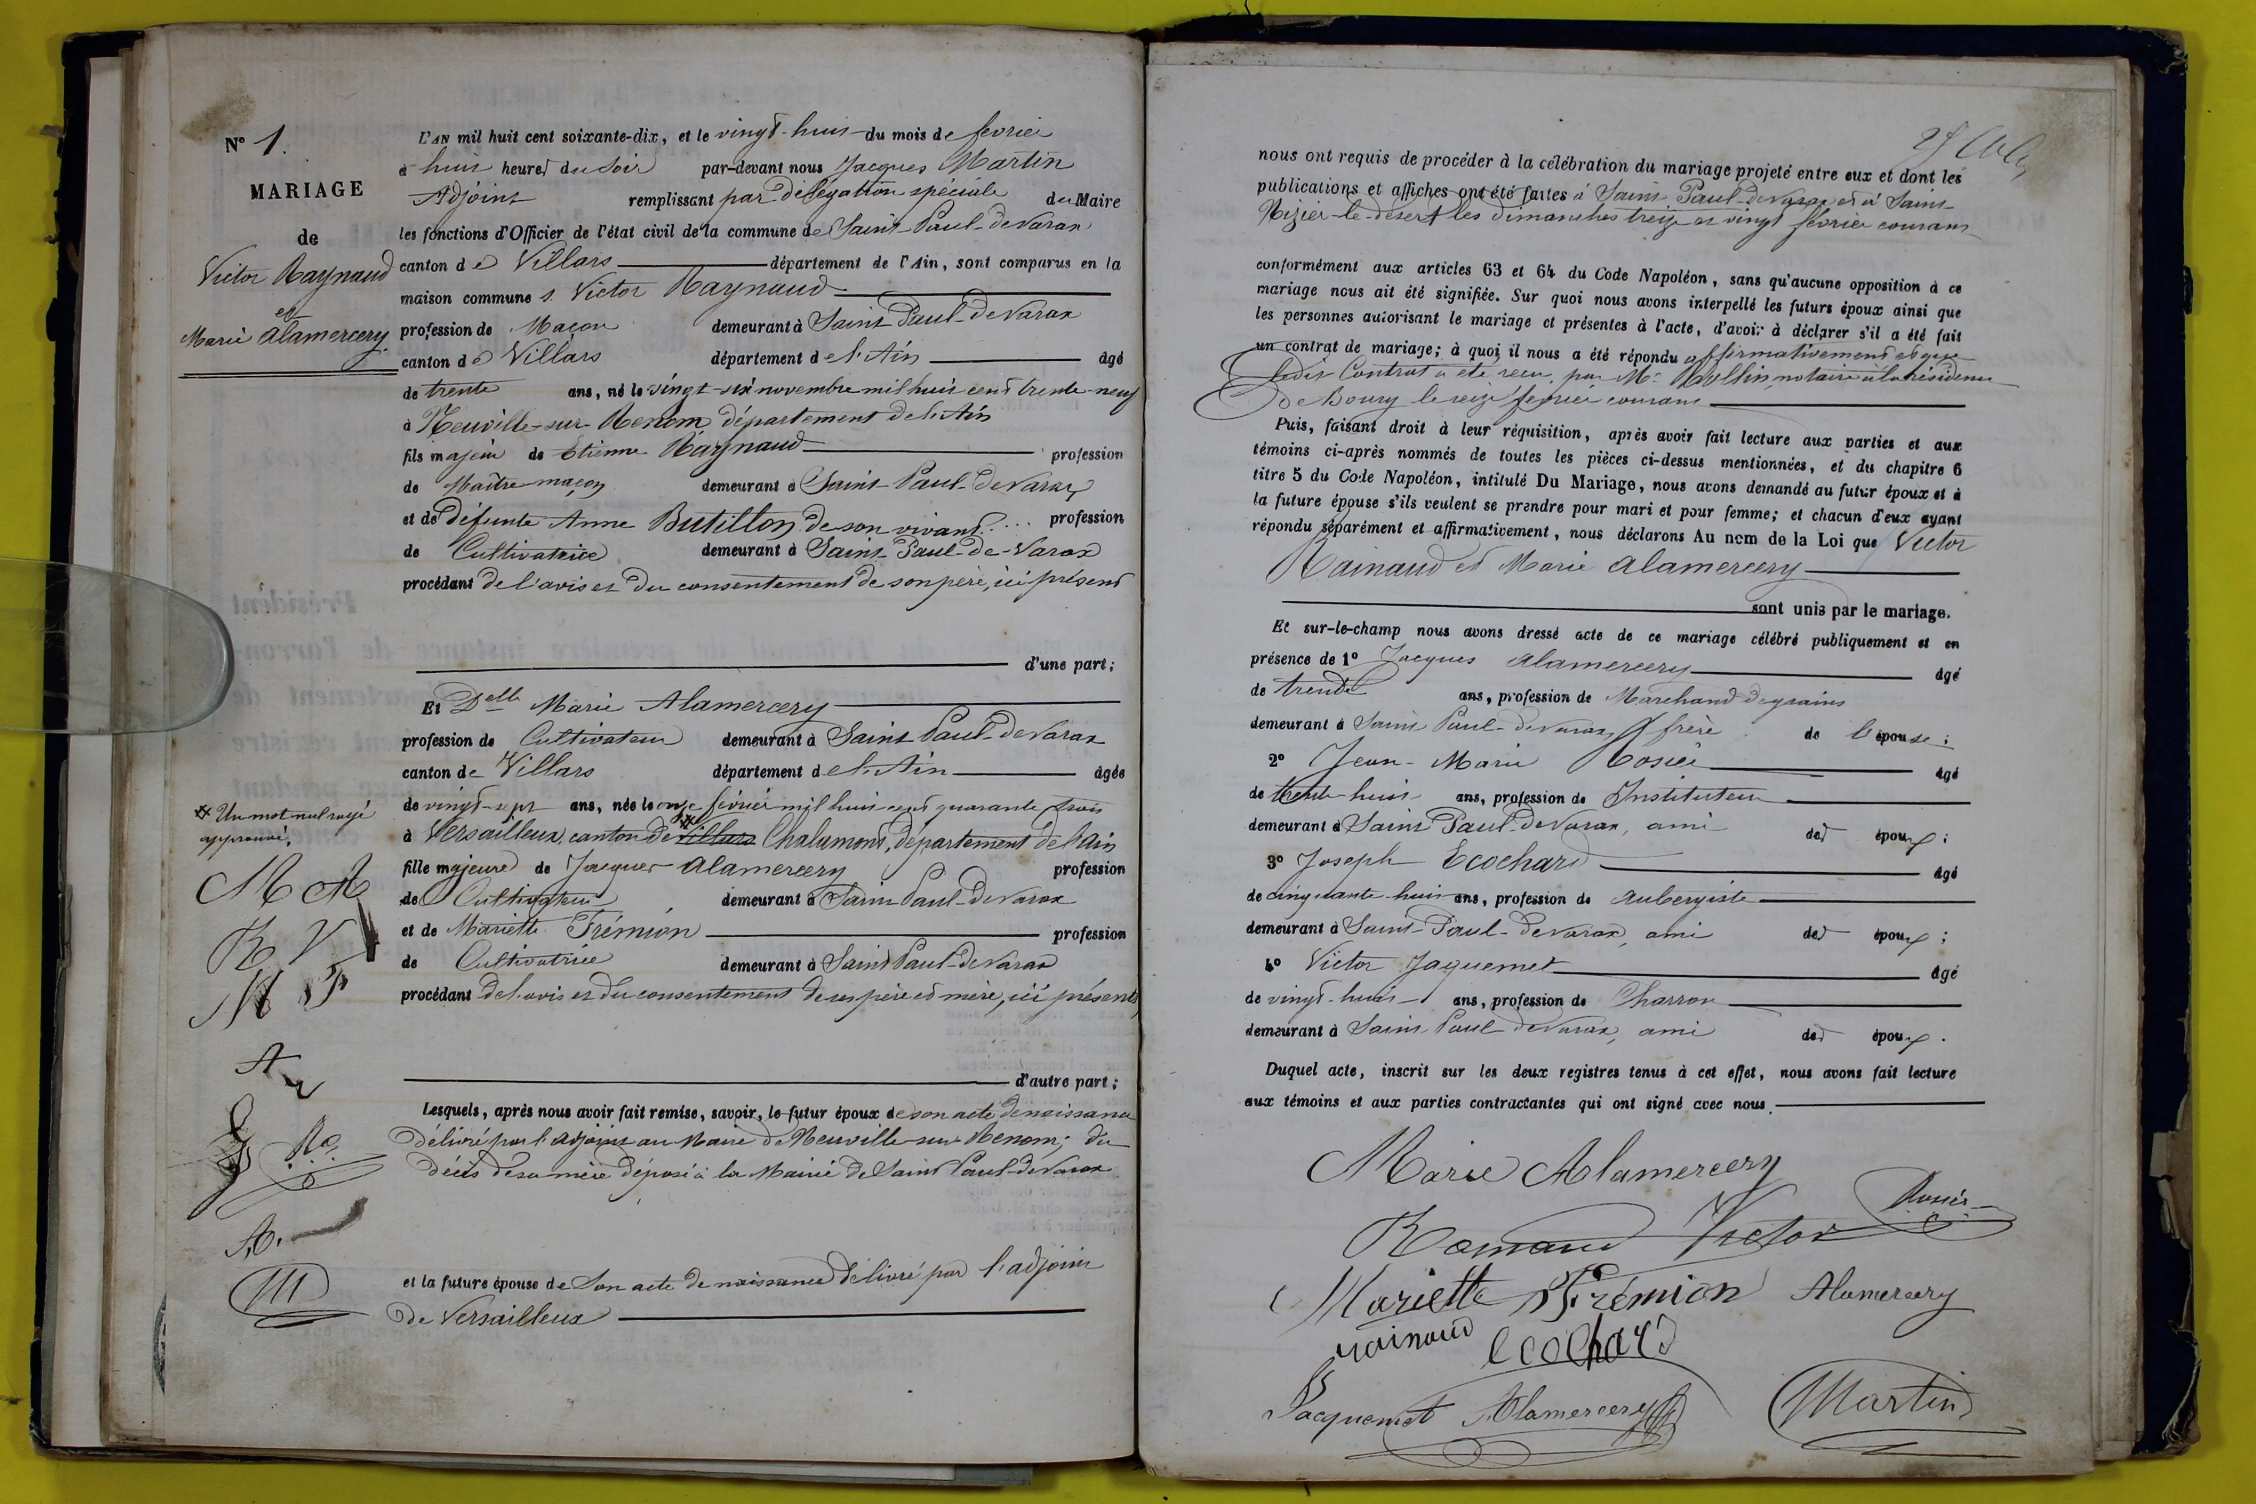 N° 1.
MARIAGE
de
Victor Raynaud
et
Marie Alamercery.
L'AN mil huit cent soixante-dix, et le vingt-huit du mois de février
à huit heures du soir par-devant nous Jacques Martin
Adjoint remplissant par délégation spéciale du Maire
les fonctions d'Officier de l'état civil de la commune de Saint-Paul-de Varax
canton de Villars département de l'Ain, sont comparus en la
maison commune s. Victor Raynaud
profession de Maçon demeurant à Saint Paul-de Varax
canton de Villars département de l'Ain âgé
de trente ans, né le vingt-six novembre mil huit cent trente-neuf
à Neuville-sur-Renom département de l'Ain
fils majeur de Etienne Raynaud profession
de Maître maçon demeurant à Saint Paul-de Varax
et de défunte Anne Butillon de son vivant profession
de Cultivatrice demeurant à Saint Paul-de-Varax
procédant de l'avis et du consentement de son père, ici présent
d'une part;
Et Delle Marie Alamercery
profession de Cultivateur demeurant à Saint Paul-de Varax
canton de Villars département de l'Ain âgée
de vingt-sept ans, née le onze février mil huit cent quarante trois
à Versailleux, canton de Villars Chalamont, département de l'Ain
fille majeure de Jacques Alamercery profession
de Cultivateur demeurant à Saint Paul-de Varax
et de Mariette Frémion profession
de Cultivatrice demeurant à Saint Paul-de Varax
procédant de l'avis et du consentement de ses père et mère, ici présents
d'autre part;
Lesquels, après nous avoir fait remise, savoir, le futur époux de son acte de naissance
délivré par l'adjoint au Maire de Neuville-sur-Renom; du
décès de sa mère déposé à la Mairie de Saint Paul-de Varax
et la future épouse de son acte de naissance délivré par l'adjoint
de Versailleux
Un mot nul rayé
approuvé.
M A
R V
M F
A
J
Ro
A.
M
nous ont requis de procéder à la célébration du mariage projeté entre eux et dont les
publications et affiches ont été faites à Saint-Paul-de Varax et à Saint-
Nizier-le-désert les dimanches treize et vingt février courant
conformément aux articles 63 et 64 du Code Napoléon, sans qu'aucune opposition à ce
mariage nous ait été signifiée. Sur quoi nous avons interpellé les futurs époux ainsi que
les personnes autorisant le mariage et présentes à l'acte, d'avoir à déclarer s'il a été fait
un contrat de mariage; à quoi il nous a été répondu affirmativement et que
ledit Contrat a été reçu par Me Rollin, notaire à la résidence
de Bourg le seize février courant
Puis, faisant droit à leur réquisition, après avoir fait lecture aux parties et aux
témoins ci-après nommés de toutes les pièces ci-dessus mentionnées, et du chapitre 6
titre 5 du Code Napoléon, intitulé Du Mariage, nous avons demandé au futur époux et à
la future épouse s'ils veulent se prendre pour mari et pour femme; et chacun d'eux ayant
répondu séparément et affirmativement, nous déclarons Au nom de la Loi que Victor
Rainaud et Marie Alamercery
sont unis par le mariage.
Et sur-le-champ nous avons dressé acte de ce mariage célébré publiquement et en
présence de 1° Jacques Alamercery âgé
de trente ans, profession de Marchand de grains
demeurant à Saint Paul-de Varax, frère de l'épouse;
2° Jean-Marie Rosier âgé
de trente-huit ans, profession de Instituteur
demeurant à Saint Paul-de Varax, ami des époux;
3° Joseph Ecochard âgé
de cinquante-huit ans, profession de Aubergiste
demeurant à Saint-Paul-de Varax, ami des époux;
4° Victor Jaquemet âgé
de vingt-huit ans, profession de Charron
demeurant à Saint Paul de Varax, ami des époux.
Duquel acte, inscrit sur les deux registres tenus à cet effet, nous avons fait lecture
aux témoins et aux parties contractantes qui ont signé avec nous.
Marie Alamercery
Rosier
Romaud Victor
Mariette Frémion Alamercery
rainaud ecochard
Jacquemet Alamercery Martin